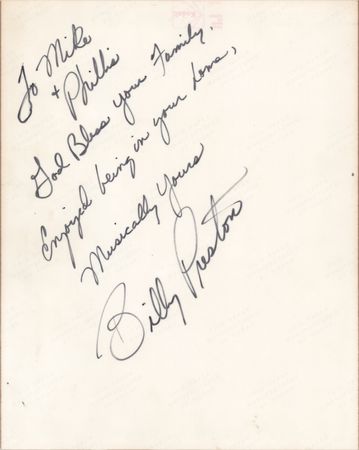 To Mike
+ Phillis
God Bless your Family,
Enjoyed being in your home,
Musically Yours
Billy Preston